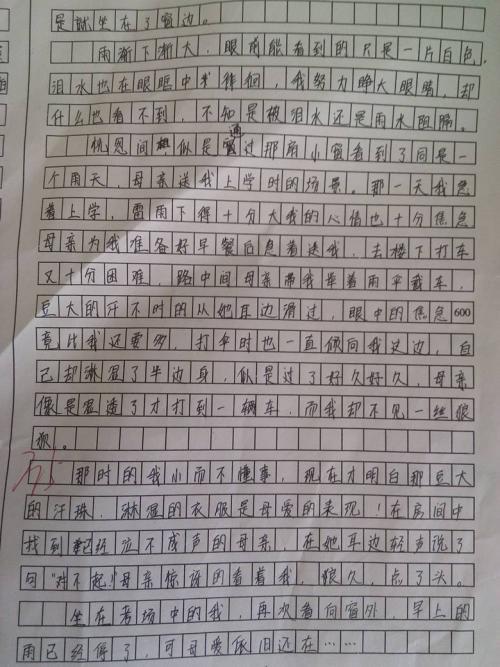 是就坐在了窗边。
雨渐下渐大,眼前能看到的只是一片白色,
泪水也在眼眶中徘徊,我努力睁大眼睛,却
什么也看不到,不知是被泪水还是雨水阻隔。
恍恩间似是通过那扇小窗看到了同是一
个雨天,母亲送我上学时的场景。那一天我急
着上学,雷雨下得十分大我的心情也十分焦急
母亲为我准备好早餐后急着送我,去楼下打车
又十分困难,路中间母亲带我举着雨伞截车,
豆大的汗不时的从她耳边滑过,眼中的焦急
600
竟比我还要多,打伞时也一直倾向我这边,自
己却淋湿了半边身,似是过了好久好久,母亲
像是湿透了才打到一辆车,而我却不见一丝狼
狈。
那时的我小而不懂事,现在才明白那豆大
的汗珠,淋湿的衣服是母爱的表现!在房间中
找到已经泣不成声的母亲,在她耳边轻声说了
句“对不起!”母亲惊讶的看着我,很久,点了头。
坐在考场中的我,再次看向窗外,早上的
雨已经停了,可母爱依旧还在……